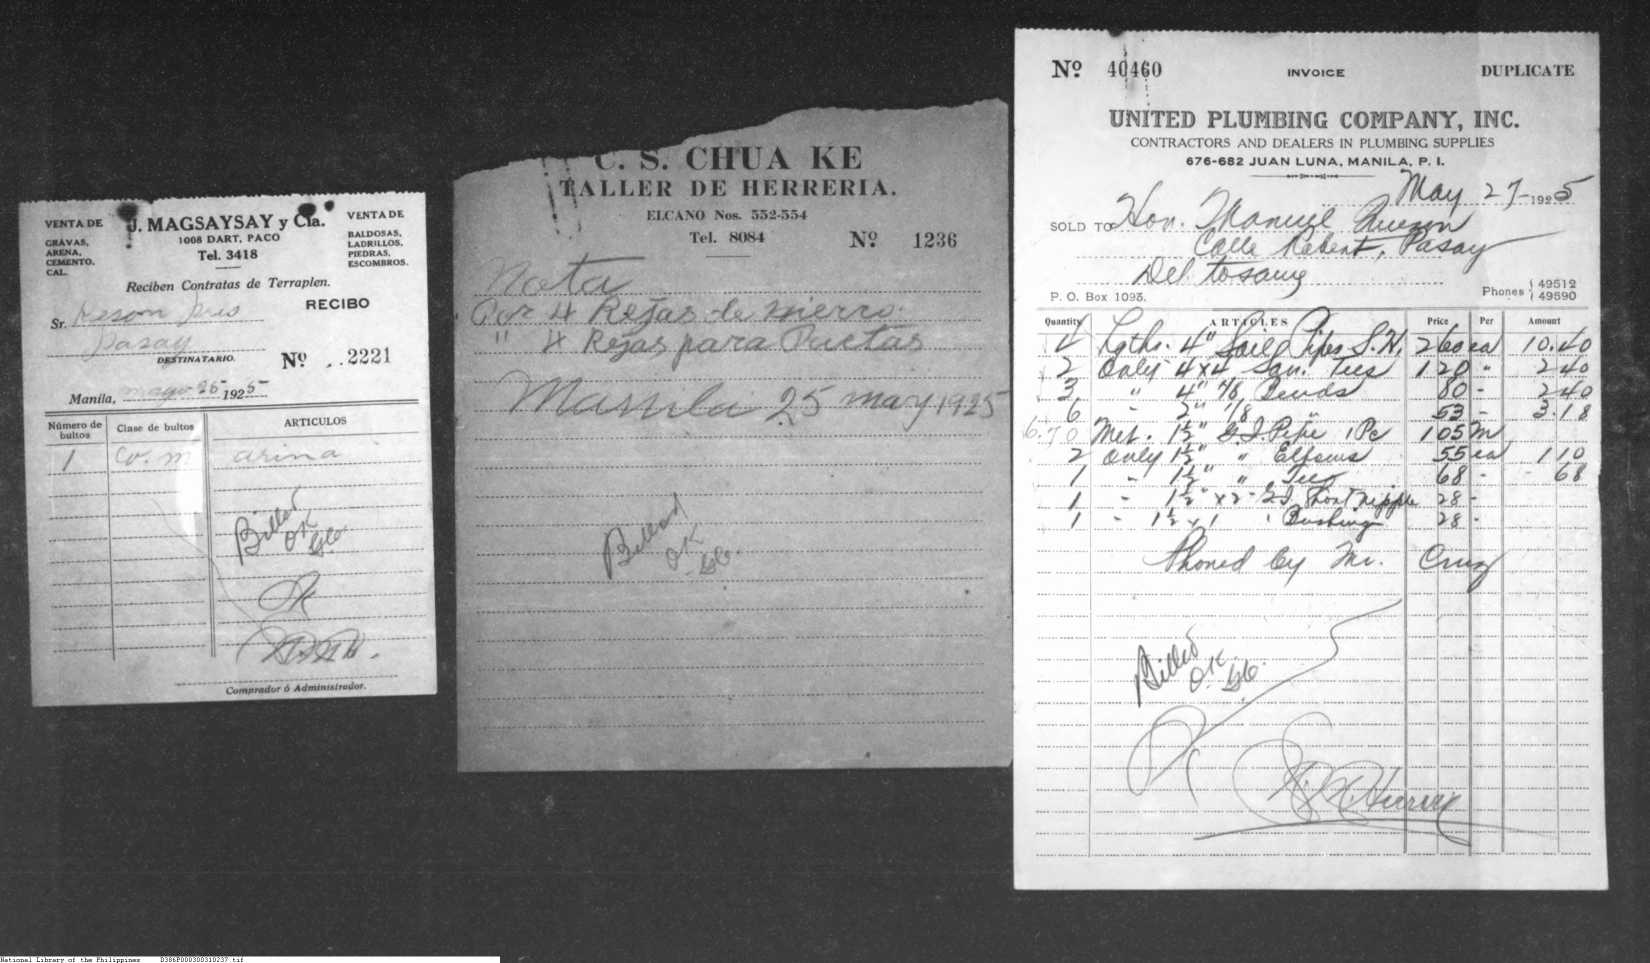 VENTA DE
GRAVAS,
ARENA,
CEMENTO,
CAL.
J. MAGSAYSAY y Cia.
1008 DART, PACO
Tel. 3418
VENTA DE
BALDOSAS,
LADRILLOS,
PIEDRAS,
ESCOMBROS.
Reciben Contratas de Terraplen.
RECIBO
Sr.
Pasay
DESTINATARIO.
Nº 2221
Manila, mayo 26 1925
Número de bultos
Clase de bultos
ARTICULOS
1 arina
Billed
OK
Comprador ó Administrador.
C. S. CHUA KE
TALLER DE HERRERIA.
ELCANO Nos. 552-554
Tel. 8084
Nº 1236
Nota
Por 4 Rejas de hierro
" 4 Rejas para Puetas
Manila 25 may 1925
Billed
OK
Nº 40460
INVOICE
DUPLICATE
UNITED PLUMBING COMPANY, INC.
CONTRACTORS AND DEALERS IN PLUMBING SUPPLIES
676-682 JUAN LUNA, MANILA, P. I.
May 27-1925
SOLD TO Hon. Manuel Quezon
Calle Rebert, Pasay
Del to same
P. O. Box 1093.
Phones 49512
49590
Quantity ARTICLES Price Per Amount
4 Lgths. 4" Soil Pipes S.H. 260 ea 10.40
2 Only 4x4 San. Tees 120 " 2 40
3 " 4" 1/8 Bends 80 - 2 40
6 " 2" 1/8 " 53 - 3.18
6.70 Met. 1½" G.I. Pipe 1 Pc 105 M
2 Only 1½" " Elbows 55 ea 1 10
1 - 1½" " Tees 68 - 68
1 - 1½" x 2" G.I. Short nipple 28 -
1 - 1½ x 1 Bushing 28 -
Phoned by Mr. Cruz
Billed
O.K.
National Library of the Philippines D386P000300310237.tif